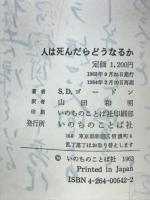 人は死んだらどうなるか
定価 1,200円
1963年9月25日発行
1984年2月20日再版
著者 S.D.ゴードン
訳者 山田和明
印刷 いのちのことば社印刷部
発行所 いのちのことば社
乱丁落丁はお取り替えします
©いのちのことば社 1963
Printed in Japan
ISBN4-264-00642-2